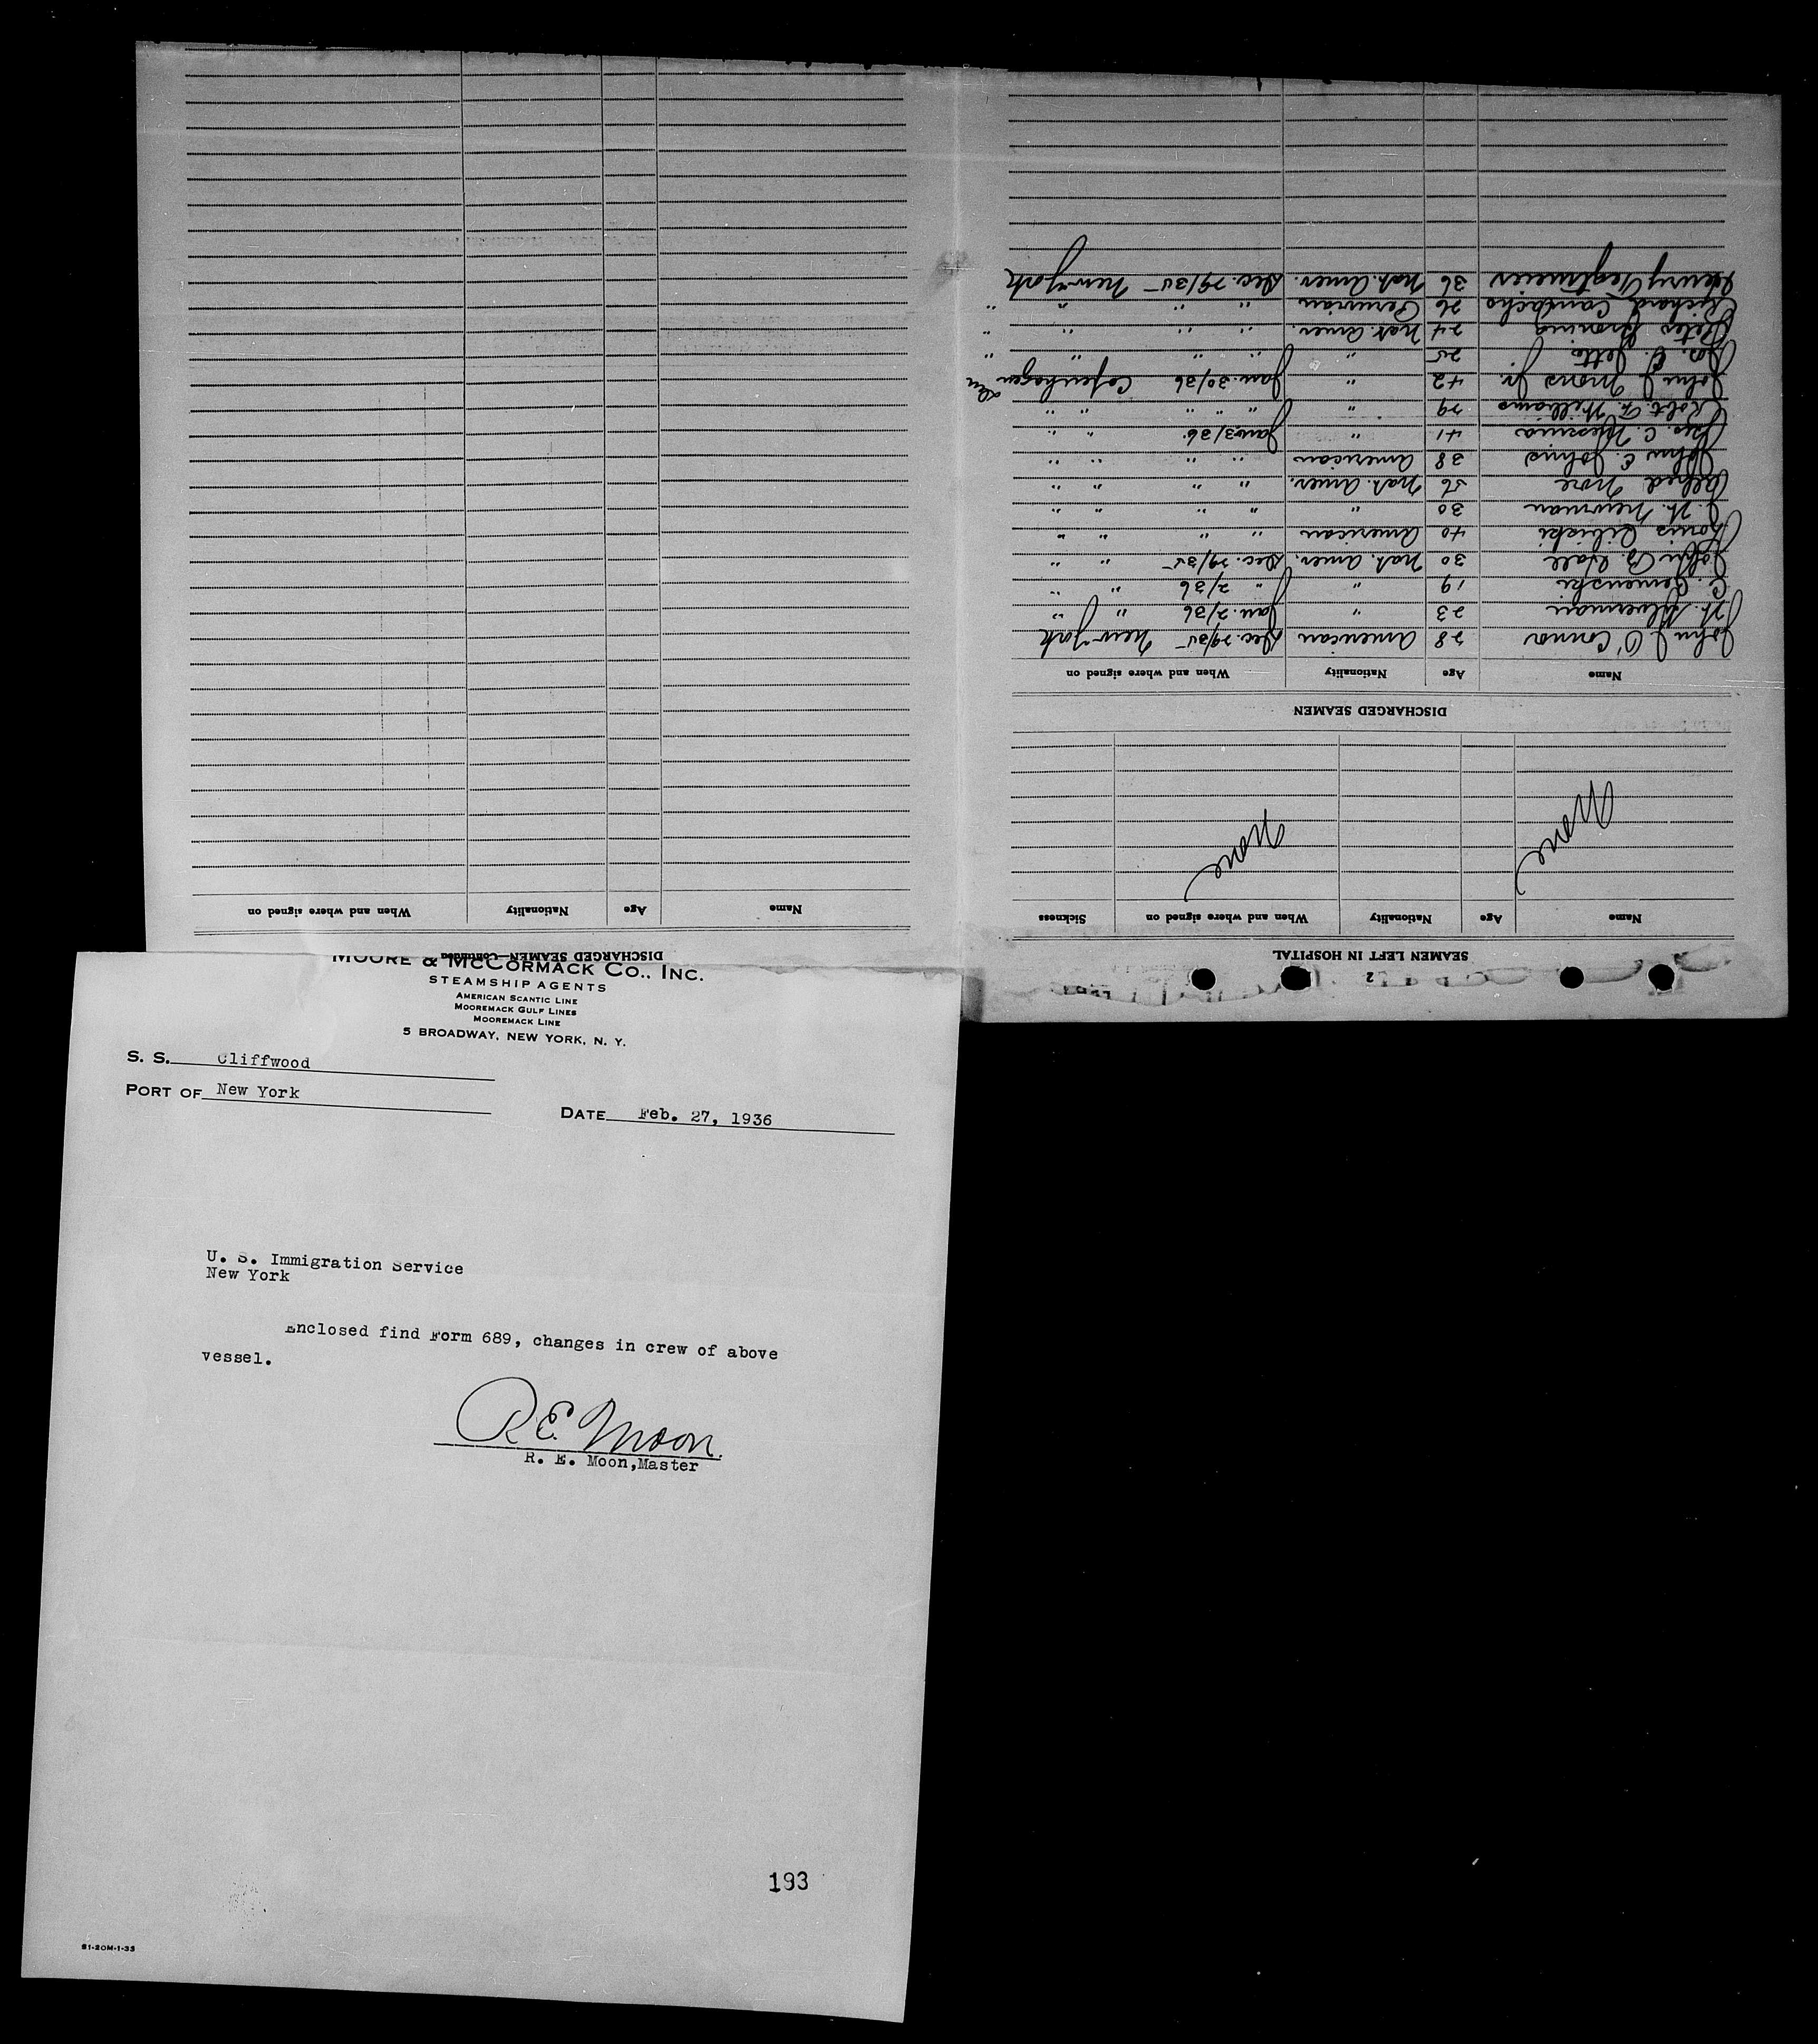 MOORE & McCORMACK CO., INC.
STEAMSHIP AGENTS
AMERICAN SCANTIC LINE
MOOREMACK GULF LINES
MOOREMACK LINE
5 BROADWAY, NEW YORK, N. Y.
S. S. Cliffwood
PORT OF New York
DATE Feb. 27, 1936
U. S. Immigration Service
New York
Enclosed find Form 689, changes in crew of above
vessel.
R. E. Moon.
R. E. Moon, Master
193
81-20M-1-35
2
SEAMEN LEFT IN HOSPITAL
Name Age Nationality When and where signed on Sickness
None None
DISCHARGED SEAMEN
Name Age Nationality When and where signed on
John J. O'Connor 28 American Dec. 29/35 New York
H. Silverman 23 " Jan. 2/36 " "
C. 19 " " 2/36 " "
John B. Hall 30 Nat. Amer. Dec. 29/35 " "
Louis 40 American " " " "
J. H. Newman 30 " " " " "
Alfred More 56 Nat. Amer. " " " "
John E. Johns 38 American " " " "
Jos. C. Messina 41 " Jan 3/36 " "
Robt. F. Williams 29 " " " " " "
John J. Mons Jr. 42 " Jan. 30/36 Copenhagen
Jos. C. Jetto 25 " " " " "
Peter 24 Nat. Amer. " " " "
Richard Camacho 26 Peruvian " " " "
Henry 36 Nat. Amer. Dec. 29/35 New York
DISCHARGED SEAMEN—Continued
Name Age Nationality When and where signed on